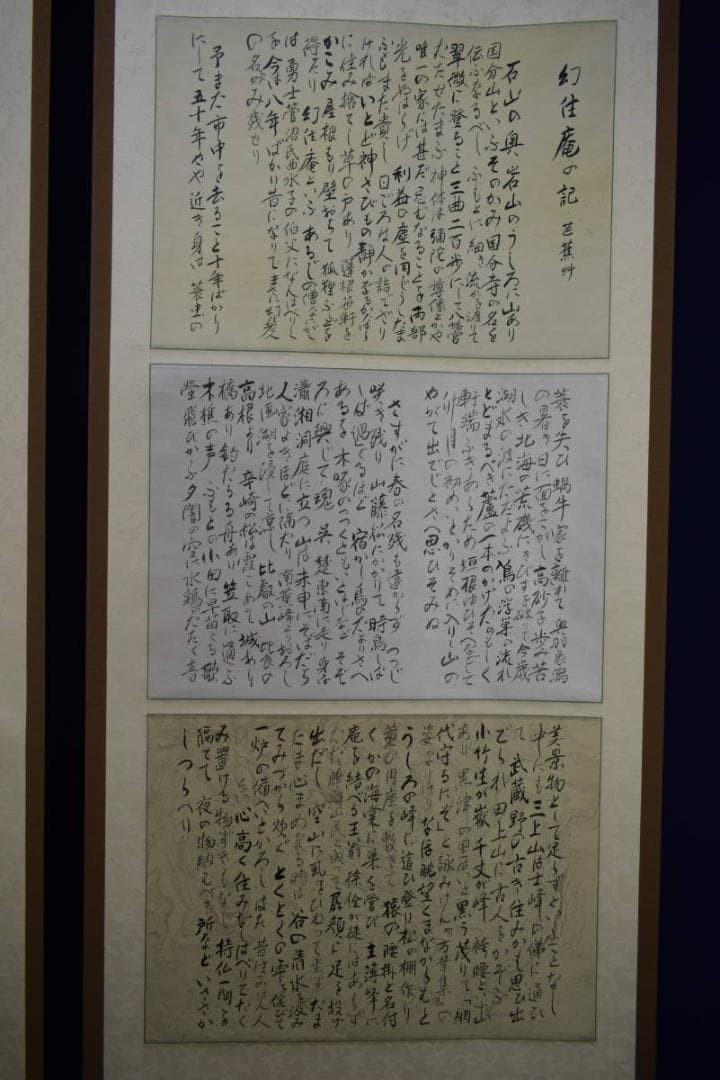 幻住庵の記 芭蕉艸
石山の奥 岩山のうしろに山あり
国分山といふ そのかみ国分寺の名を
伝ふなるべし ふもとに細き流れを渡りて
翠微に登ること三曲二百歩にして 八幡宮
たたせたまふ 神体は弥陀の尊像とかや
唯一の家には甚だ忌むなることを 両部
光をやはらげ 利益の塵を同じうしたま
ふもまた貴し 日ごろは人の詣でざり
ければ いとど神さびもの静かなるかたはら
に住み捨てし草の戸あり 蓬根笹軒を
かこみ 屋根もり壁おちて 狐狸ふしどを
得たり 幻住庵といふ あるじの僧なにがし
は 勇士菅沼氏曲水子の伯父になんはべりし
を 今は八年ばかり昔になりて まさに幻住老人
の名のみ残せり
予また市中を去ること十年ばかり
にして 五十年やや近き身は 蓑虫の
蓑を失ひ 蝸牛家を離れて 奥羽象潟
の暑き日に面をこがし 高砂子歩み苦
しき北海の荒磯にきびすを破りて 今歳
湖水の波にただよふ 鳰の浮巣の流れ
とどまるべき蘆の一本のかげたのもしく
軒端ふきあらため 垣根ゆひそへなどして
卯月の初めいとかりそめに入りし山の
やがて出でじとさへ思ひそみぬ
さすがに春の名残も遠からず つつじ
咲き残り 山藤松にかかりて 時鳥しば
しば過ぐるほど 宿かし鳥のたよりさへ
あるを 木啄のつつくともいとはじなど そぞ
ろに興じて 魂 呉楚東南に走り 身は
瀟湘洞庭に立つ 山は未申にそばだち
人家よきほどに隔たり 南薫峰よりおろし
北風湖を浸して涼し 比叡の山 比良の
高根より 辛崎の松は霞こめて 城あり
橋あり 釣たるる舟あり 笠取に通ふ
木樵の声 ふもとの小田に早苗とる歌
蛍飛びかふ夕闇の空に 水鶏のたたく音
美景物として足らずといふことなし
中にも三上山は士峰の俤に通ひ
て 武蔵野の古き住みかも思ひ出
でられ 田上山に古人をかぞふ
小竹生が嶽 千丈が峰 袴腰といふ山
あり 黒津の里はいと黒う茂りて 「網
代守るにぞ」と詠みけん万葉集の
姿なりけり なほ眺望くまなからむと
うしろの峰に這ひ登り 松の棚作り
藁の円座を敷きて 猿の腰掛と名付
く かの海棠に巣を営び 主簿峰に
庵を結べる王翁徐佺が徒にはあらず
ただ睡癖山民と成って 孱顔に足を投げ
出だし 空山に虱をひねって坐す たま
たま心まめなる時は 谷の清水を汲み
てみづから炊ぐ とくとくの雫を侘びて
一炉の備へいとかろし はた 昔住みけん人
心高く住みなしはべりて たく
み置ける物ずきもなし 持仏一間を
隔てて 夜の物納むべき所など いささか
しつらへり